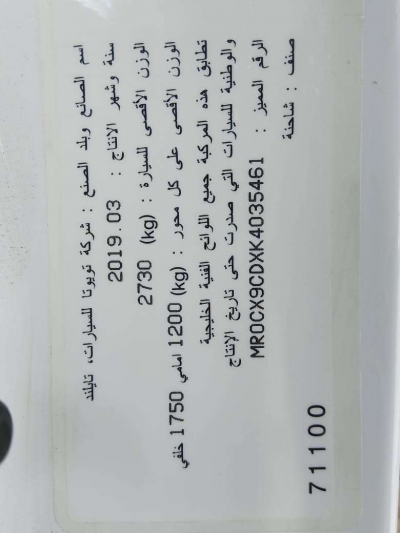 اسم الصانع وبلد الصنع : شركة تويوتا للسيارات، تايلند
سنة وشهر الانتاج : 2019.03
الوزن الأقصى للسيارة : (kg) 2730
الوزن الأقصى على كل محور : (kg) 1200 امامي 1750 خلفي
تطابق هذه المركبة جميع اللوائح الفنية الخليجية
والوطنية للسيارات التي صدرت حتى تاريخ الإنتاج
الرقم المميز : MR0CX9CDXK4035461
صنف : شاحنة
71100